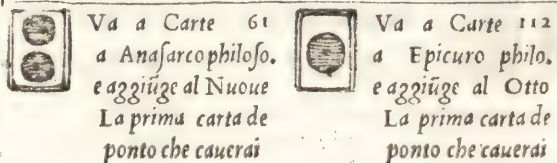 Va a Carte 61
a Anaſarco philoſo.
e aggiũge al Nuoue
La prima carta de
ponto che cauerai
Va a Carte 112
a Epicuro philo.
e aggiũge al Otto
La prima carta de
ponto che cauerai